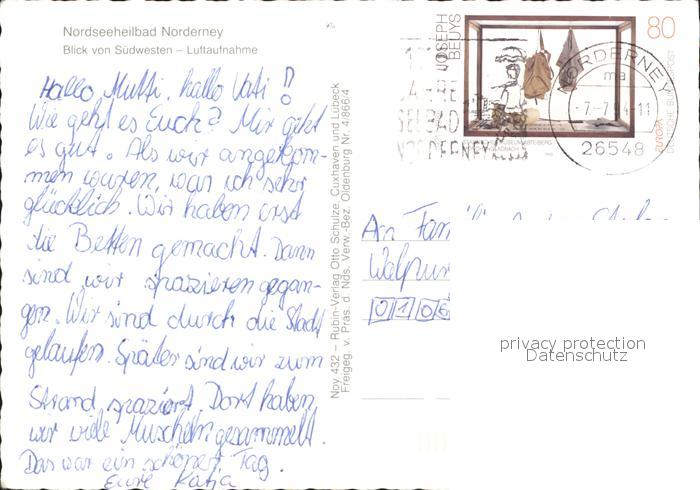 Nordseeheilbad Norderney
Blick von Südwesten – Luftaufnahme
Hallo Mutti, hallo Vati!
Wie geht es Euch? Mir geht
es gut. Als wir angekom-
men waren, war ich sehr
glücklich. Wir haben erst
die Betten gemacht. Dann
sind wir spazieren gegan-
gen. Wir sind durch die Stadt
gelaufen. Später sind wir zum
Strand spaziert. Dort haben
wir viele Muscheln gesammelt.
Das war ein schöner Tag.
Eure Katja
Noy 432 – Rubin-Verlag Otto Schulze, Cuxhaven und Lübeck
Freigeg. v. Präs. d. Nds. Verw.-Bez. Oldenburg Nr. 4866/4
JOSEPH
BEUYS
80
DEUTSCHE BUNDESPOST
EUROPA
NORDERNEY
NORDERNEY
ma
-7.-7.94-11
26548
An Fam
Walpur
0106
privacy protection
Datenschutz